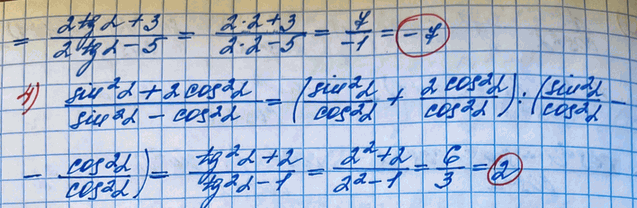 = (2tgα + 3)/(2tgα - 5) = (2·2 + 3)/(2·2 - 5) = 7/-1 = -7
4) (sin²α + 2cos²α)/(sin²α - cos²α) = (sin²α/cos²α + 2cos²α/cos²α) : (sin²α/cos²α -
- cos²α/cos²α) = (tg²α + 2)/(tg²α - 1) = (2² + 2)/(2² - 1) = 6/3 = 2